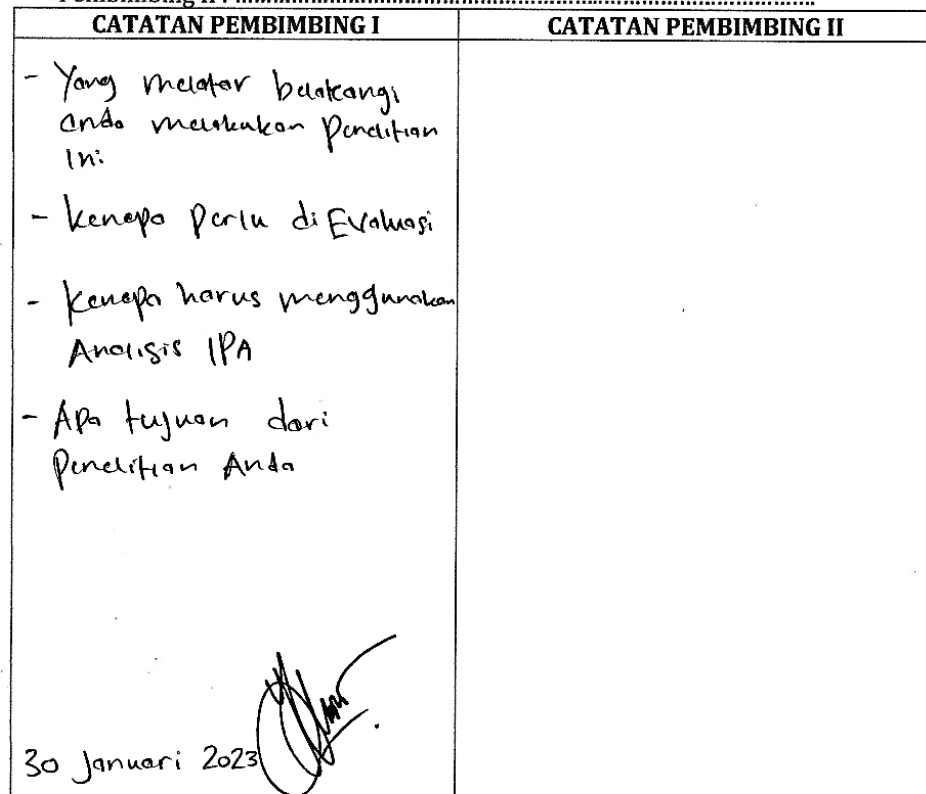 Pembimbing II : ................................................................
CATATAN PEMBIMBING I
CATATAN PEMBIMBING II
- Yang melatar belakangi
anda melakukan Penelitian
ini
- Kenapa Perlu di Evaluasi
- Kenapa harus menggunakan
Analisis IPA
- Apa tujuan dari
Penelitian Anda
30 Januari 2023